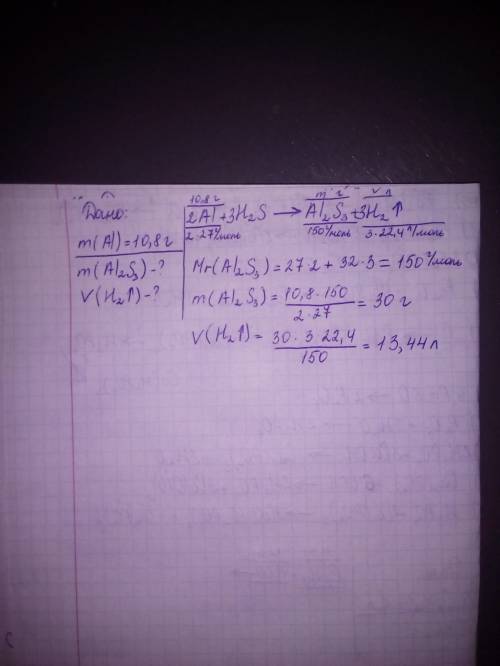 Дано:
m(Al)=10,8г
m(Al₂S₃)-?
V(H₂↑)-?
10,8г m г V л
2Al+3H₂S → Al₂S₃+3H₂↑
2·27г/моль 150г/моль 3·22,4л/моль
Mr(Al₂S₃)=27·2+32·3=150г/моль
m(Al₂S₃)=10,8·150/2·27=30 г
V(H₂↑)=30·3·22,4/150=13,44л